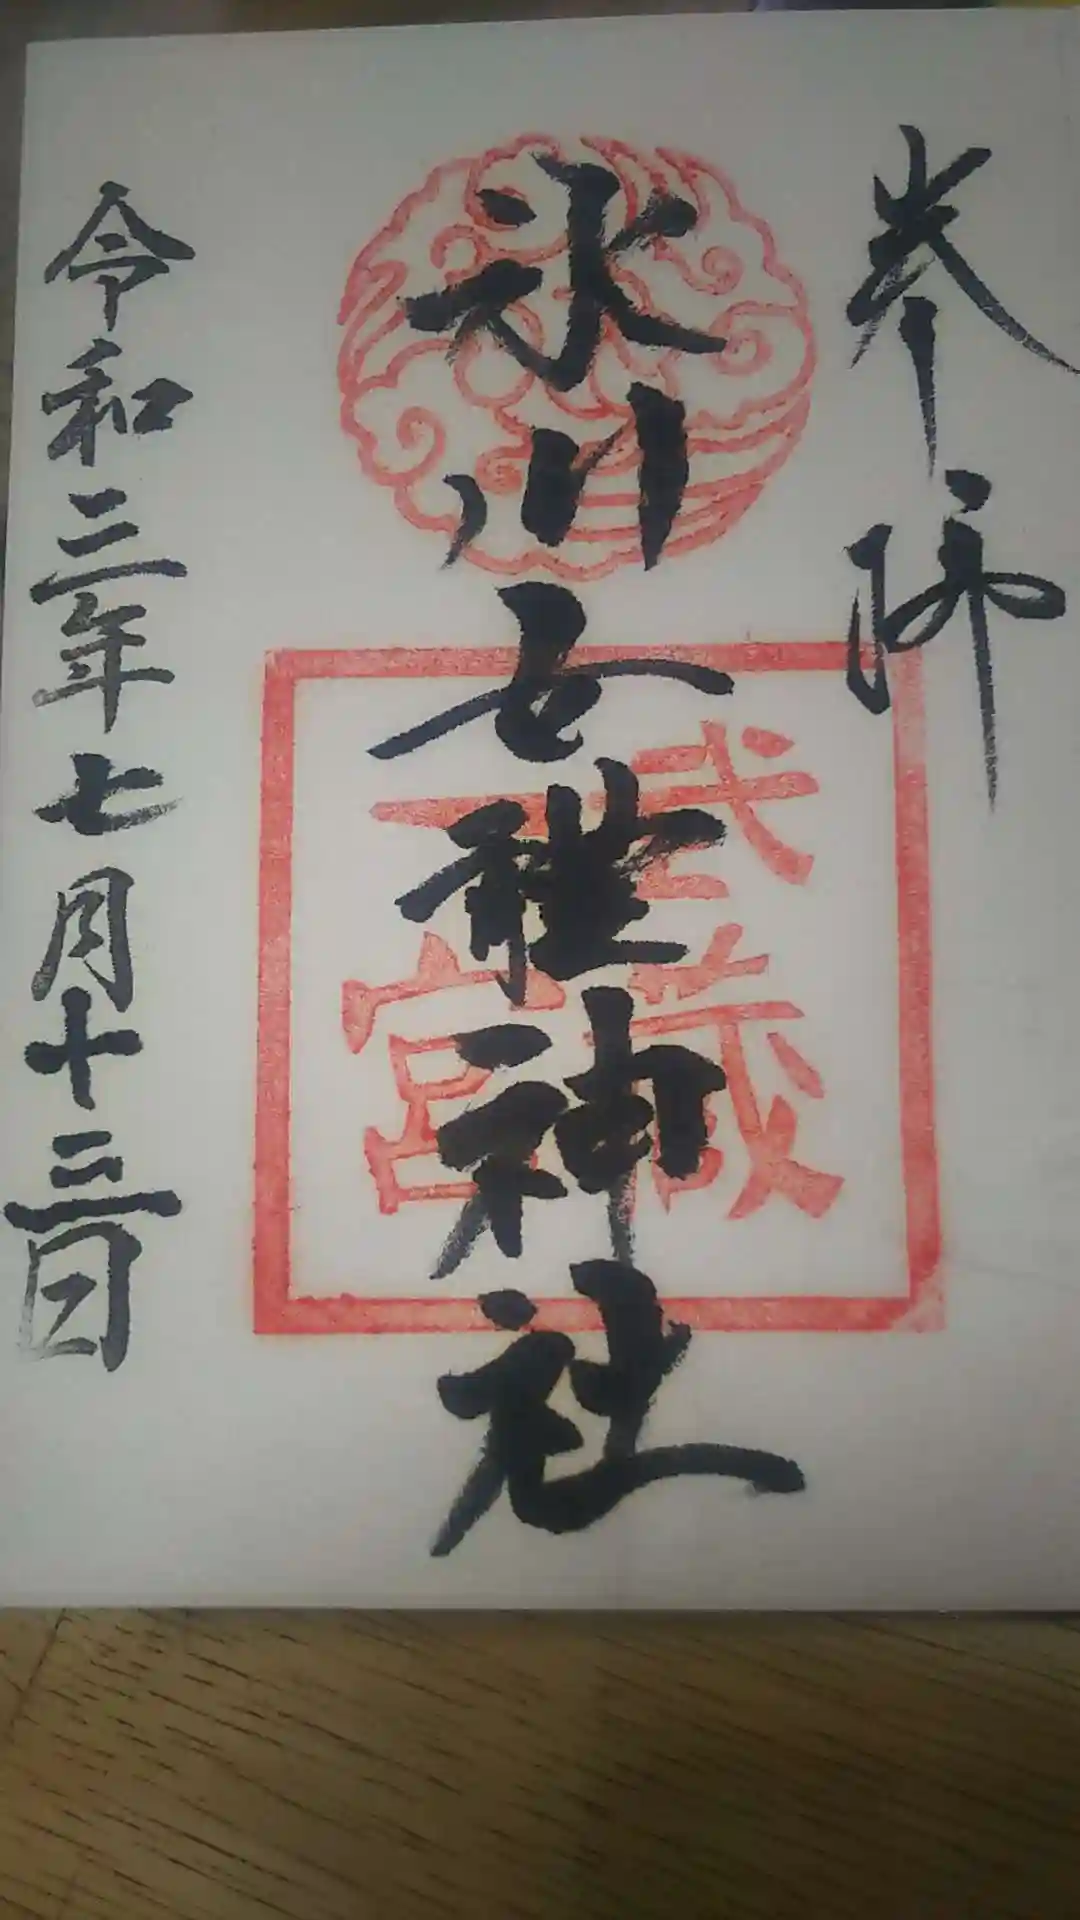 奉拝
氷川女體神社
武蔵
一宮
令和三年七月十三日